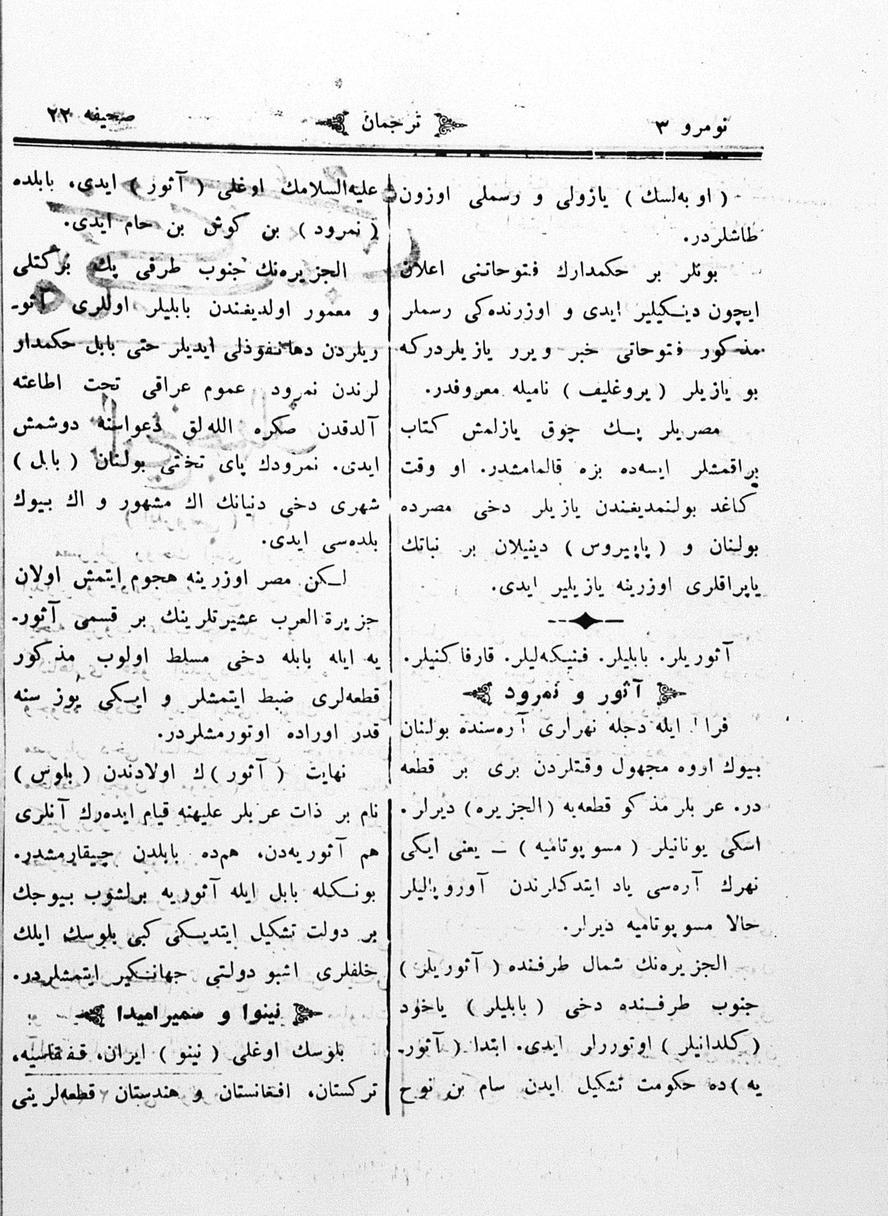 نومرو ٣
ترجمان
صحیفه ٢٢
( اوبه‌لسك ) یازولی و رسملی اوزون
طاشلردر.
بونلر بر حکمدارك فتوحاتنی اعلان
ایچون دینکیلیر ایدی و اوزرنده‌کی رسملر
مذکور فتوحاتی خبر ویرر یازیلردرکه
بو یازیلر ( یروغلیف ) نامیله معروفدر.
مصریلر پك چوق یازلمش کتاب
براقمشلر ایسه‌ده بزه قالمامشدر. او وقت
کاغد بولنمدیغندن یازیلر دخی مصرده
بولنان و ( پاپیروس ) دینیلان بر نباتك
یاپراقلری اوزرینه یازیلیر ایدی.
آثوریلر. بابلیلر. فینیکه‌لیلر. قارفاکنیلر.
آثور و نمرود
فرات ایله دجله نهرلری آره‌سنده بولنان
بیوك اروه مجهول وقتلردن بری بر قطعه
در. عربلر مذکو قطعه‌یه (الجزیره) دیرلر.
اسکی یونانیلر ( مسوپوتامیه ) ــ یعنی ایکی
نهرك آره‌سی یاد ایتدکلرندن آوروپالیلر
حالا مسوپوتامیه دیرلر.
الجزیره‌نك شمال طرفنده ( آثوریلر )
جنوب طرفنده دخی ( بابلیلر ) یاخود
( کلدانیلر ) اوتوررلر ایدی. ابتدا ( آثور-
یه ) ده حکومت تشکیل ایدن سام بن نوح
علیه‌السلامك اوغلی ( آثور ) ایدی. بابلده
( نمرود ) بن کوش بن حام ایدی.
الجزیره‌نك جنوب طرفی پك برکتلی
و معمور اولدیغندن بابلیلر اوللری آثو-
ریلردن دها نفوذلی ایدیلر حتی بابل حکمدا
لرندن نمرود عموم عراقی تحت اطاعته
آلدقدن صکره الله‌لق دعواسنه دوشمش
ایدی. نمرودك پای تختی بولنان ( بابل )
شهری دخی دنیانك اك مشهور و اك بیوك
بلده‌سی ایدی.
لکن مصر اوزرینه هجوم ایتمش اولان
جزیرة العرب عشیرتلرینك بر قسمی آثور-
یه ایله بابله دخی مسلط اولوب مذکور
قطعه‌لری ضبط ایتمشلر و ایکی یوز سنه
قدر اوراده اوتورمشلردر.
نهایت ( آثور )ك اولادندن ( بلوس )
نام بر ذات عربلر علیهنه قیام ایده‌رك آنلری
هم آثوریه‌دن، هم‌ده بابلدن چیقارمشدر.
بونکله بابل ایله آثوریه برلشوب بیوجك
بر دولت تشکیل ایتدیکی کبی بلوسك ایلك
خلفلری اشبو دولتی جهانکیر ایتمشلردر.
نینوا و سمیرامیدا
بلوسك اوغلی ( نینو ) ایران، قفقاسیه،
ترکستان، افغانستان و هندستان قطعه‌لرینی